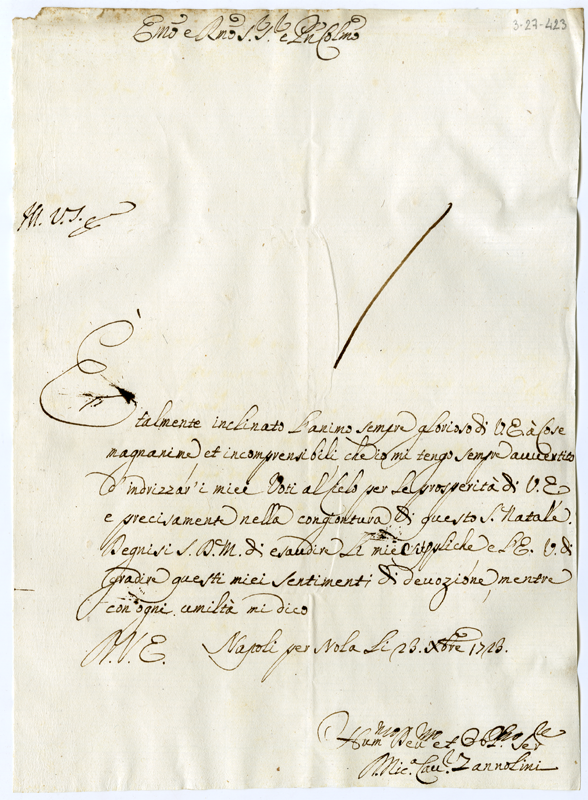 3-27-423
Emo e Rmo S. Sr. e Pn Colmo
M. V. S.
È talmente inclinato l'animo sempre glorioso di V. E. à cose
magnanime et incomprensibili che io mi tengo sempre avvertito
d'indrizzar'i miei Voti al Cielo per le prosperità di V. E.
e precisamente nella congontura di questo S. Natale.
Degnisi S. D. M. di esaudire le mie suppliche e l'E. V. di
gradire questi miei sentimenti di devozione, mentre
con ogni umiltà mi dico
D. V. E. Napoli per Nola li 23. Xbre 1723.
Hummo Devmo et Ser
Cau. Zannolini